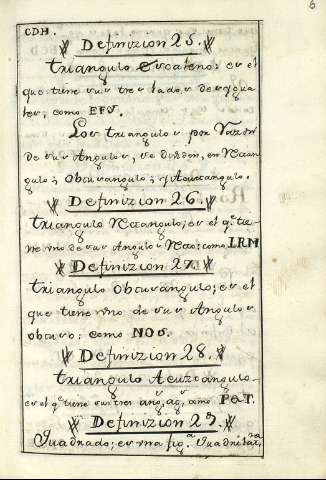 6
CDH.
Definizion 25.
triangulo Escaleno: es el
que tiene sus tres lados desygua
les, como EFS.
Los triangulos por razon
de sus Angulos, se dividen, en Recan
gulo; Obcuvangulo; y Acuzangulo.
Definizion 26.
triangulo Recangulo; es el q.e tie-
ne vno de sus Angulos Reco: como LRM
Definizion 27.
triangulo Obcuvangulo; es el
que tiene vno de sus Angulos
obcuso: como NOS.
Definizion 28.
triangulo Acuzcangulo
es el q.e tiene sus tres ang.s ag.s, como PQT.
Definizion 29.
Quadrado; es vna fig.a Quadrilat.a,